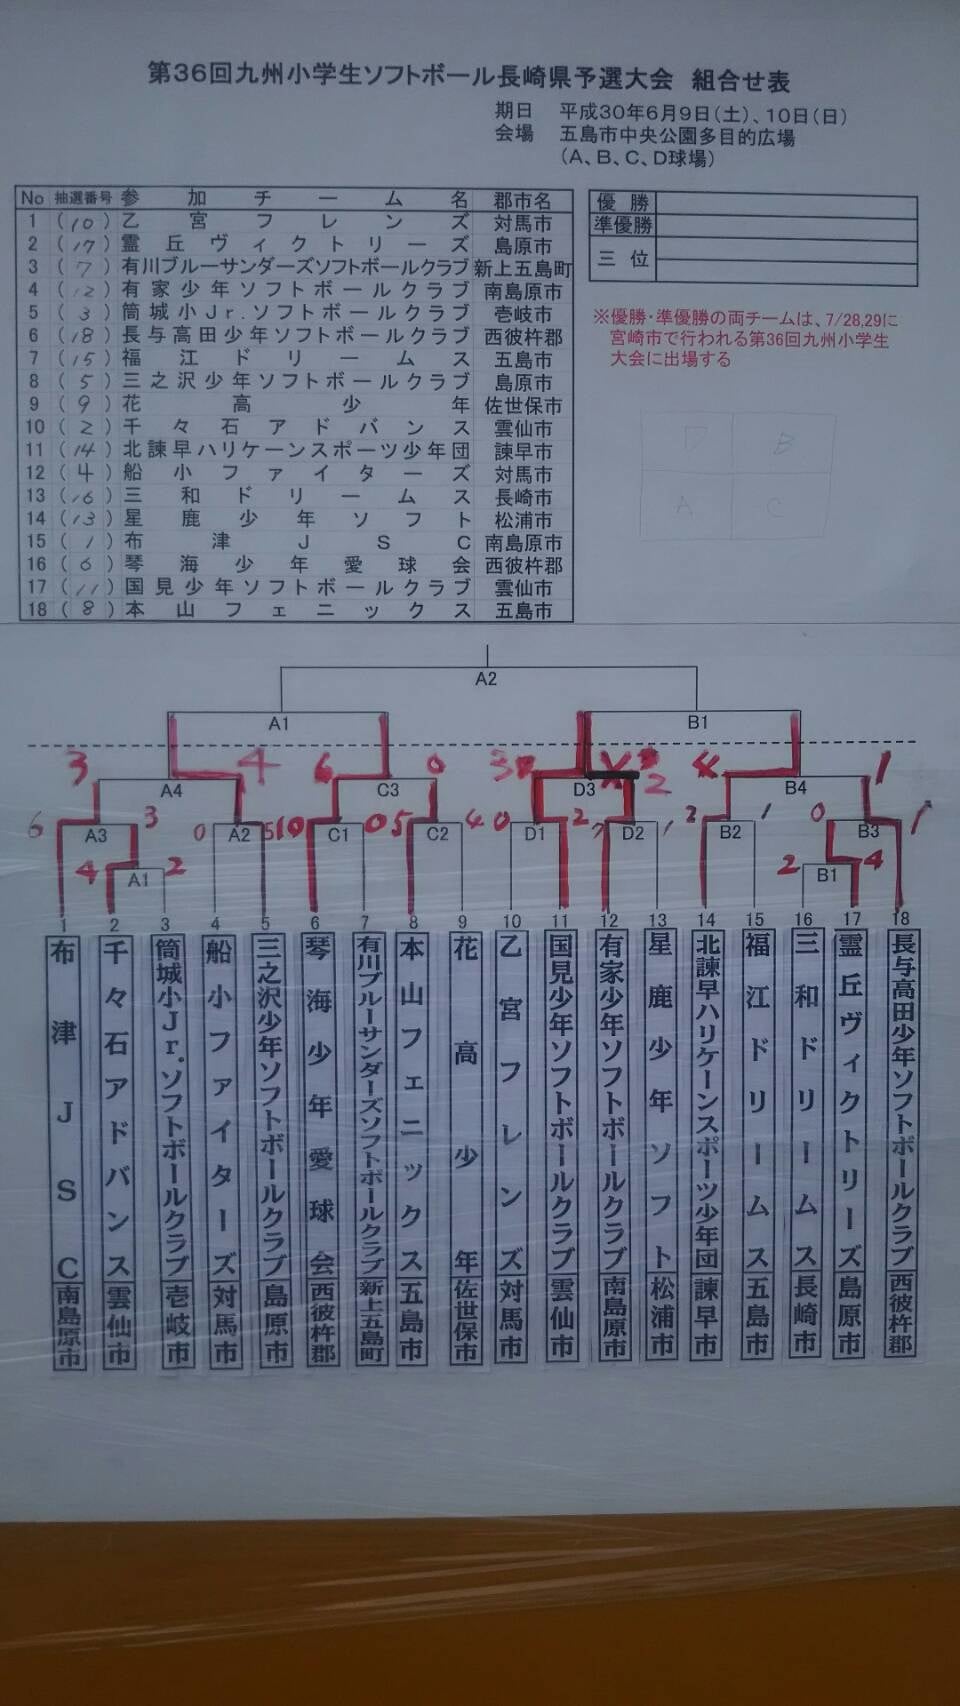 第36回九州小学生ソフトボール長崎県予選大会 組合せ表
期日 平成30年6月9日(土)、10日(日)
会場 五島市中央公園多目的広場
(A、B、C、D球場)
No 抽選番号 参加チーム名 郡市名
1 (10) 乙宮フレンズ 対馬市
2 (17) 霊丘ヴィクトリーズ 島原市
3 (7) 有川ブルーサンダーズソフトボールクラブ 新上五島町
4 (12) 有家少年ソフトボールクラブ 南島原市
5 (3) 筒城小Jr.ソフトボールクラブ 壱岐市
6 (18) 長与高田少年ソフトボールクラブ 西彼杵郡
7 (15) 福江ドリームス 五島市
8 (5) 三之沢少年ソフトボールクラブ 島原市
9 (9) 花高少年 佐世保市
10 (2) 千々石アドバンス 雲仙市
11 (14) 北諫早ハリケーンスポーツ少年団 諫早市
12 (4) 船小ファイターズ 対馬市
13 (16) 三和ドリームス 長崎市
14 (13) 星鹿少年ソフト 松浦市
15 (1) 布津JSC 南島原市
16 (6) 琴海少年愛球会 西彼杵郡
17 (11) 国見少年ソフトボールクラブ 雲仙市
18 (8) 本山フェニックス 五島市
優勝
準優勝
三位
※優勝・準優勝の両チームは、7/28,29に
宮崎市で行われる第36回九州小学生
大会に出場する
D B
A C
A2
A1 B1
3 4 6 0 3 2 4 1
A4 C3 D3 B4
6 3 0 5 10 0 5 4 0 2 7 1 2 1 0 1
A3 A2 C1 C2 D1 D2 B2 B3
4 2 2 4
A1 B1
1 2 3 4 5 6 7 8 9 10 11 12 13 14 15 16 17 18
布津JSC 南島原市
千々石アドバンス 雲仙市
筒城小Jr.ソフトボールクラブ 壱岐市
船小ファイターズ 対馬市
三之沢少年ソフトボールクラブ 島原市
琴海少年愛球会 西彼杵郡
有川ブルーサンダーズソフトボールクラブ 新上五島町
本山フェニックス 五島市
花高少年 佐世保市
乙宮フレンズ 対馬市
国見少年ソフトボールクラブ 雲仙市
有家少年ソフトボールクラブ 南島原市
星鹿少年ソフト 松浦市
北諫早ハリケーンスポーツ少年団 諫早市
福江ドリームス 五島市
三和ドリームス 長崎市
霊丘ヴィクトリーズ 島原市
長与高田少年ソフトボールクラブ 西彼杵郡